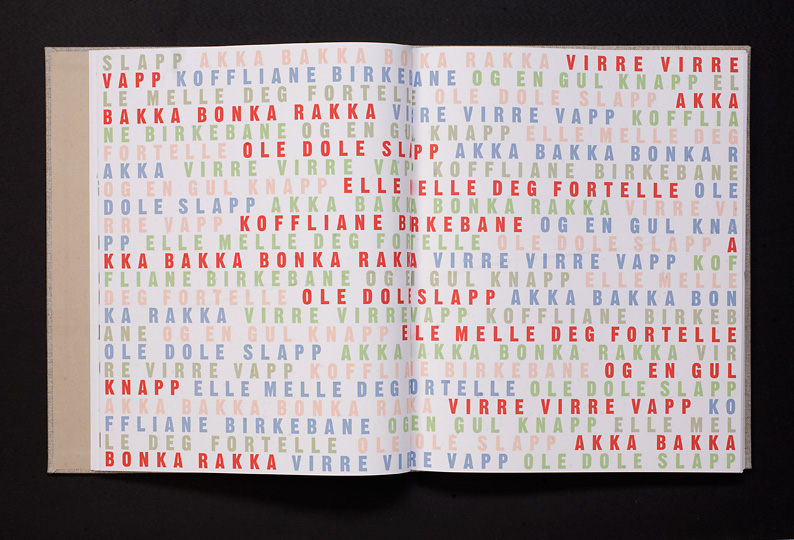 SLAPP AKKA BAKKA BONKA RAKKA VIRRE VIRRE
VAPP KOFFLIANE BIRKEBANE OG EN GUL KNAPP EL
LE MELLE DEG FORTELLE OLE DOLE SLAPP AKKA
BAKKA BONKA RAKKA VIRRE VIRRE VAPP KOFFLIA
NE BIRKEBANE OG EN GUL KNAPP ELLE MELLE DEG
FORTELLE OLE DOLE SLAPP AKKA BAKKA BONKA R
AKKA VIRRE VIRRE VAPP KOFFLIANE BIRKEBANE
OG EN GUL KNAPP ELLE MELLE DEG FORTELLE OLE
DOLE SLAPP AKKA BAKKA BONKA RAKKA VIRRE VI
RRE VAPP KOFFLIANE BIRKEBANE OG EN GUL KNA
PP ELLE MELLE DEG FORTELLE OLE DOLE SLAPP A
KKA BAKKA BONKA RAKKA VIRRE VIRRE VAPP KOF
FLIANE BIRKEBANE OG EN GUL KNAPP ELLE MELLE
DEG FORTELLE OLE DOLE SLAPP AKKA BAKKA BON
KA RAKKA VIRRE VIRRE VAPP KOFFLIANE BIRKEB
ANE OG EN GUL KNAPP ELLE MELLE DEG FORTELLE
OLE DOLE SLAPP AKKA BAKKA BONKA RAKKA VIR
RE VIRRE VAPP KOFFLIANE BIRKEBANE OG EN GUL
KNAPP ELLE MELLE DEG FORTELLE OLE DOLE SLAPP
AKKA BAKKA BONKA RAKKA VIRRE VIRRE VAPP KO
FFLIANE BIRKEBANE OG EN GUL KNAPP ELLE MEL
LE DEG FORTELLE OLE DOLE SLAPP AKKA BAKKA
BONKA RAKKA VIRRE VIRRE VAPP OLE DOLE SLAPP